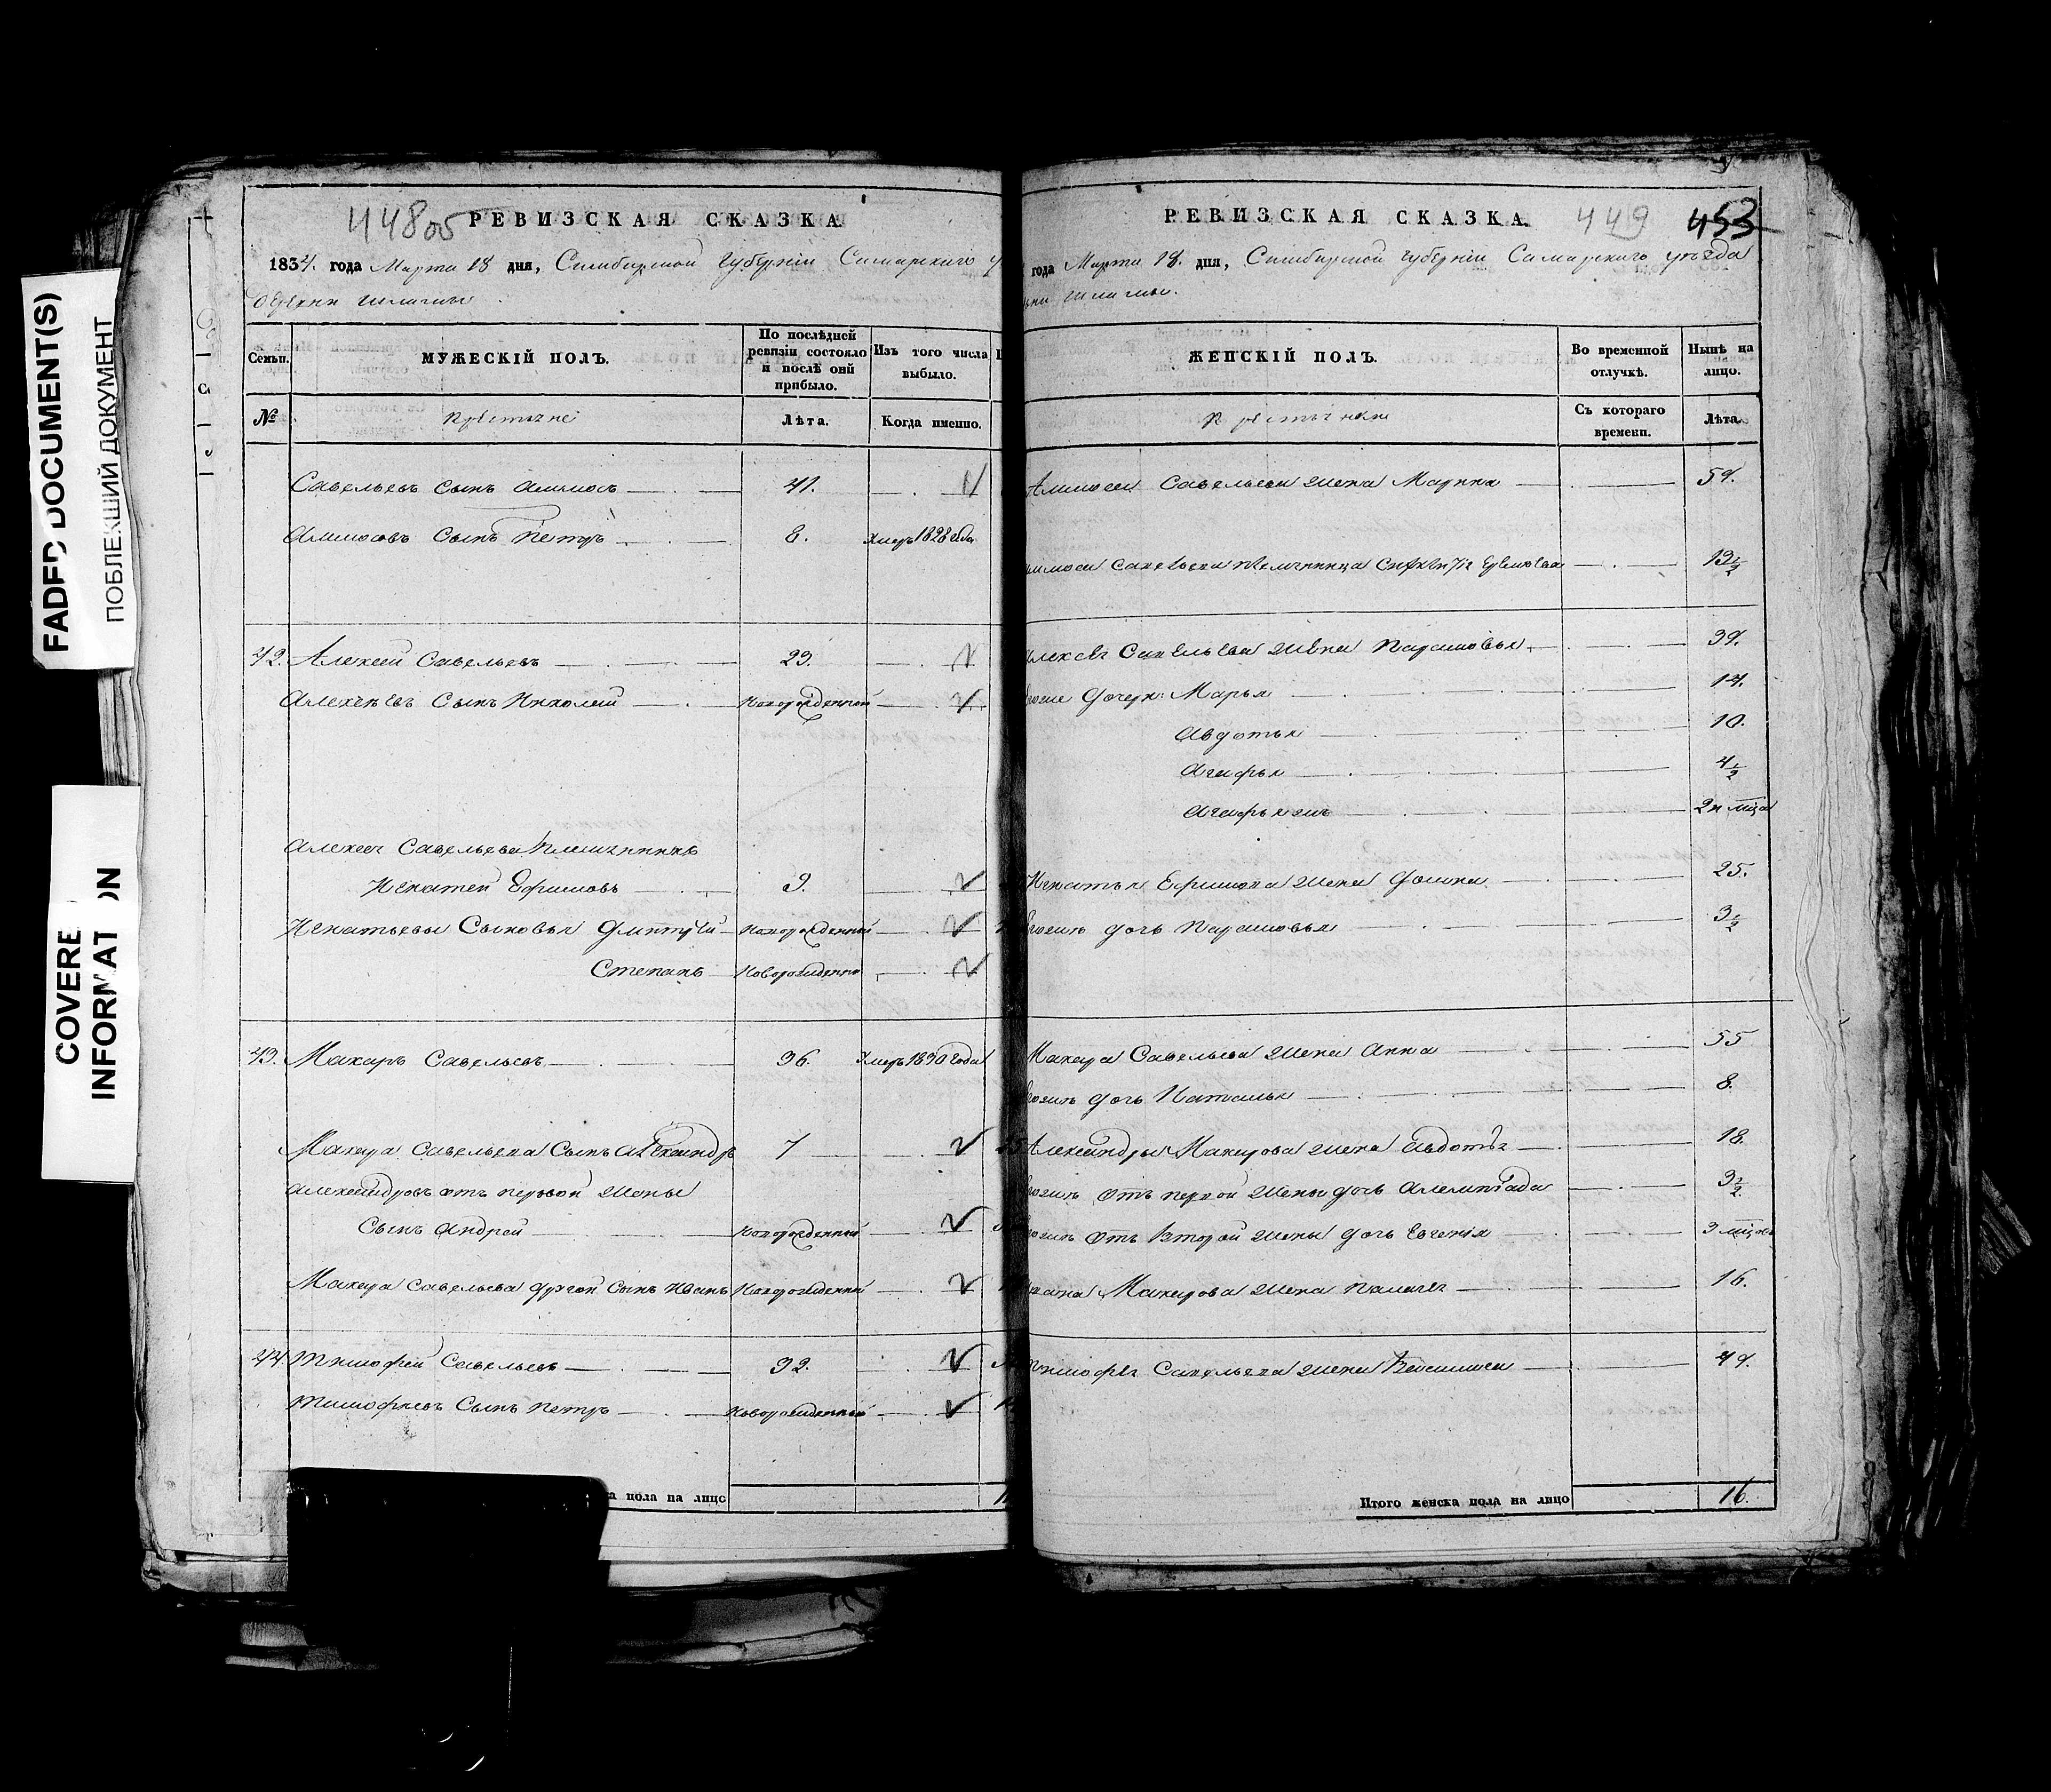 FADED DOCUMENT(S)
ПОБЛЕКШИЙ ДОКУМЕНТ
COVERE
INFORMAT ON
44805
РЕВИЗСКАЯ СКАЗКА
1834. года Марта 18 дня, Симбирской губерніи Самарскаго
Семьи.
МУЖЕСКІЙ ПОЛЪ.
По послѣдней ревизіи состояло и послѣ оній прибыло.
Изъ того числа выбыло.
№
Крестьяне
Лѣта.
Когда именно.
Савельевъ сынъ Аммосъ 41.
Аммосовъ сынъ Петръ 8. Умеръ 1828 года
42. Алексей Савельевъ 23.
Алексѣевъ сынъ Николай Новорожденной
Алексея Савельева племянникъ
Игнатей Ефимовъ 9.
Игнатьевы сыновья Дмитрій Новорожденной
Степанъ Новорожденной
43. Макаръ Савельевъ 36. Умеръ 1830 года
Макара Савельева сынъ Александръ 7
Александровъ отъ первой жены
сынъ Андрей Новорожденный
Макара Савельева другой сынъ Иванъ Новорожденный
44. Тимофей Савельевъ 32.
Тимофѣевъ сынъ Петръ Новорожденный
пола на лицо
РЕВИЗСКАЯ СКАЗКА.
449 453
года Марта 18. дня, Симбирской губерніи Самарскаго уѣзда
ЖЕНСКІЙ ПОЛЪ.
Во временной отлучкѣ.
Нынѣ на лицо.
Крестьянки
Съ котораго времени.
Лѣта
Аммоса Савельева жена Марина 57.
Аммоса Савельева племянница 13½
Алексея Савельева жена Парасковья 39.
дочери: Марья 14.
Авдотья 10.
Агафья 4½
Агафья жъ
Игнатья Ефимова жена Фокина 25.
дочь Парасковья 3½
Макара Савельева жена Анна 55
дочь Наталья 8.
Александры Макарова жена Евдотья 18.
отъ первой жены дочь 3½
отъ второй жены дочь Евгенія 3
Ивана Макарова жена Палагея 16.
Тимофея Савельева жена Василиса 49.
Итого женска пола на лицо 16.